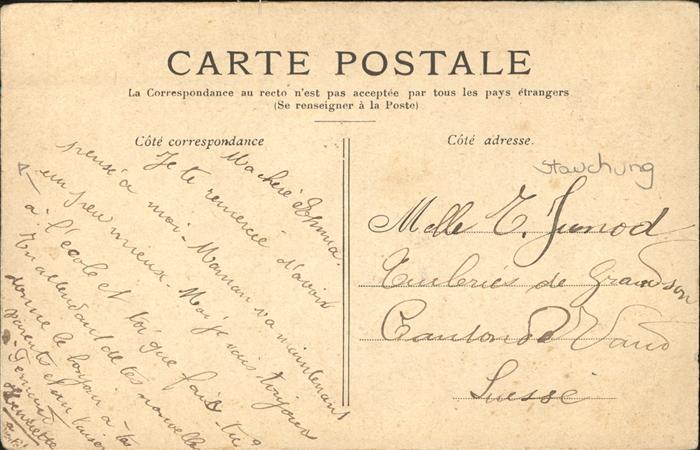 CARTE POSTALE
La Correspondance au recto n'est pas acceptée par tous les pays étrangers
(Se renseigner à la Poste)
Côté correspondance
Ma chère Emma.
Je te remercie d'avoir
pensé à moi - Maman va maintenant
un peu mieux. Moi je vais toujours
à l'école et toi que fais-tu?
En attendant de tes nouvelles
donne le bonjour à tes
parents et un baiser
Henriette
Côté adresse.
Stauchung
Melle E. Junod
Tuileries de Grandson
Canton de Vaud
Suisse